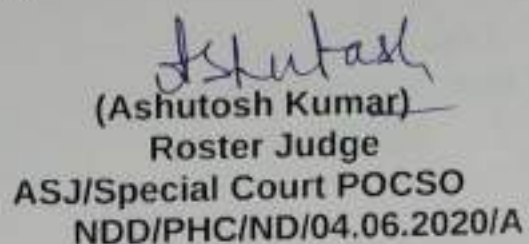 Ashutosh
(Ashutosh Kumar)
Roster Judge
ASJ/Special Court POCSO
NDD/PHC/ND/04.06.2020/A